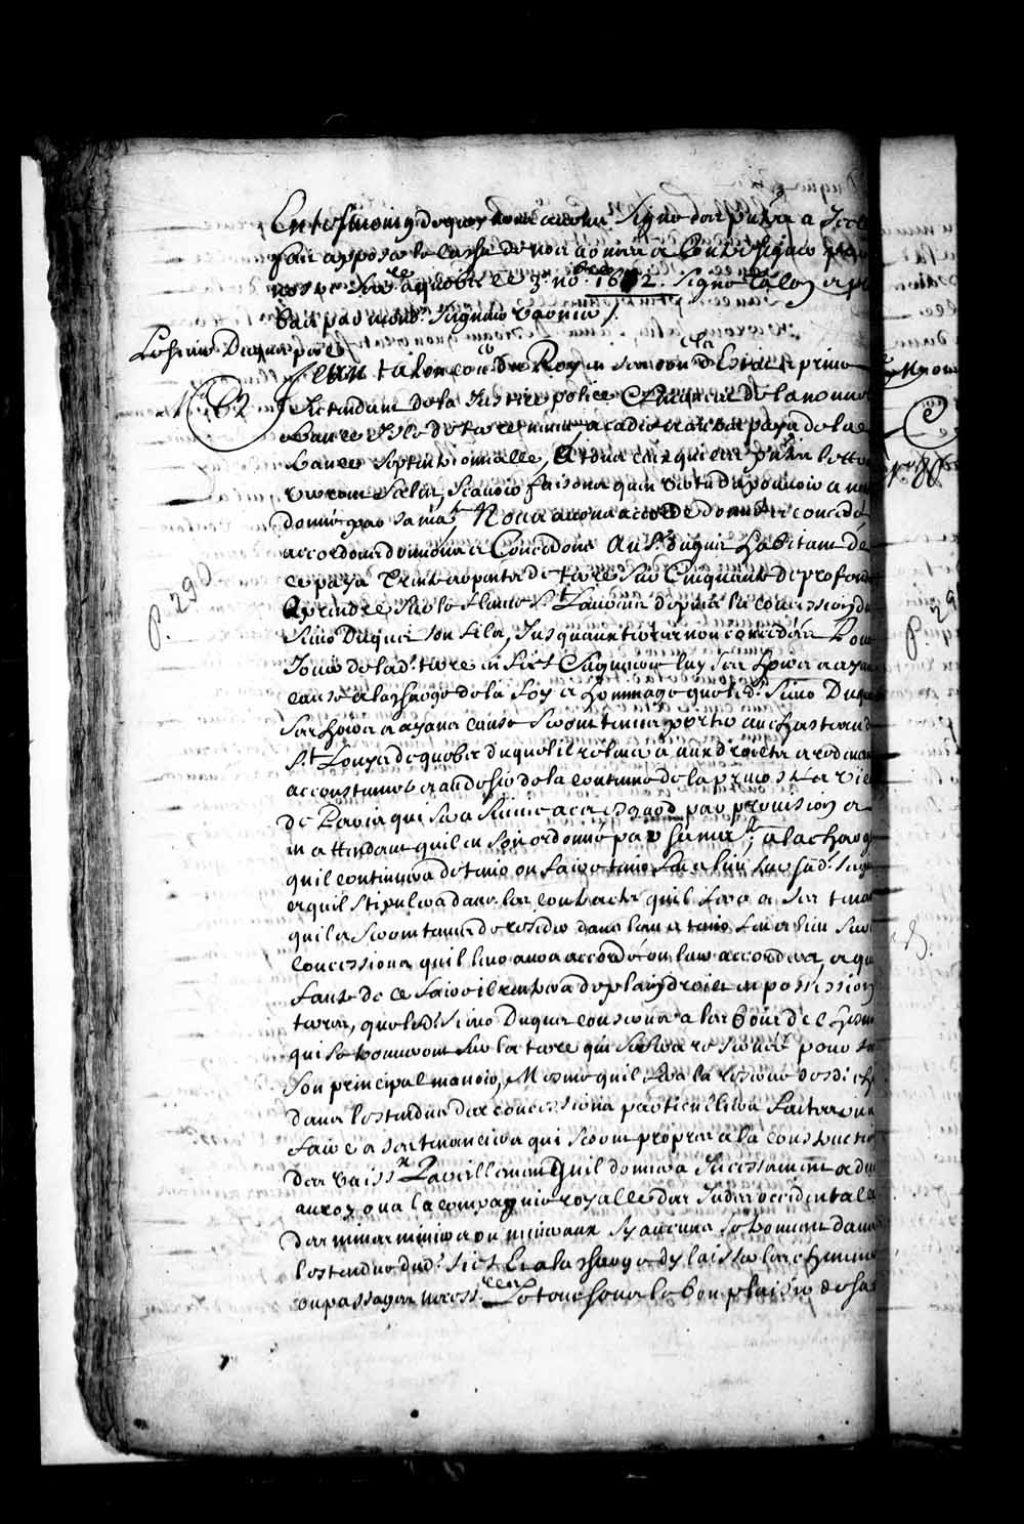 En tesmoing de quoy nous avons signé des pntes a Icel
fait apposer le cachet de nos armes et contresigner
nostre secre a quebec le 3e nobre 1672. Signé talon et plus
bas par mond. Seigneur varnier
Le sieur Duquet pere
Jean talon conser du Roy en ses conls destat et prive
No 62
Intendant de la Justice police et finances de la nouvelle
france Isle de terre neuve, acadie et autres pays de la
france septentrionalle, A tous ceux qui ces pntes lettres
verront Salut, Scavoir faisons qu'en vertu du pouvoir a nous
donné par sa maté, Nous avons accordé donné et concedé
accordons donnons et Concedons Au Sr. duquet habitant de
ce pays trente arpents de terre sur Cinquante de profondeur
a prendre sur le fleuve St Laurens depuis la concession du
P. 290
sieur Duquet son fils, Jusqu'aux terres non concedées Pour
Jouir de lad. terre en fief Seigneurie luy ses hoirs et ayans
cause a la charge de la foy et hommage que led. sieur Duquet
ses hoirs et ayans cause seront tenus porter au chasteau de
St. Louys de quebec duquel il relevera aux droicts et redevances
accoustumés et au desir de la coutume de la prevosté et vicomté
de Paris qui sera suivie a cet esgard par provision et
en attendant quil en soit ordonné par sa maté, a la charge
quil continuera de tenir ou faire tenir feu et lieu sur sad. seigie
et quil stipulera dans les contracts quil fera a ses tenan
quils seront tenus de resider dans l'an et tenir feu et lieu sur
concessions quil leur aura accordé ou leur accordera, et qu
faute de ce faire il rentrera de plain droict en possession
terres, que led. sieur Duquet conservera les bois de chesne
qui se trouveront sur la terre qui sera reservée pour
son principal manoir, Mesme quil fera la reserve desd. ch
dans l'estendue des concessions particulieres faites ou a
faire a ses tenanciers qui seront propres a la construction
des vaissx Pareillement quil donnera Incessament advis
au roy ou a la compagnie royalle des Indes occidentales
des mines minieres ou mineraux sy aucuns se trouvent dans
l'estendue dud. fief Et a la charge d'y laisser les chemins
ou passages necessres Le tout sous le bon plaisir de sa